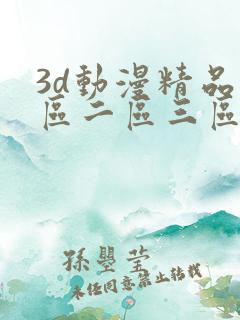 3d動漫精品
區二區三區
孫璺莹
未经同意禁止转载